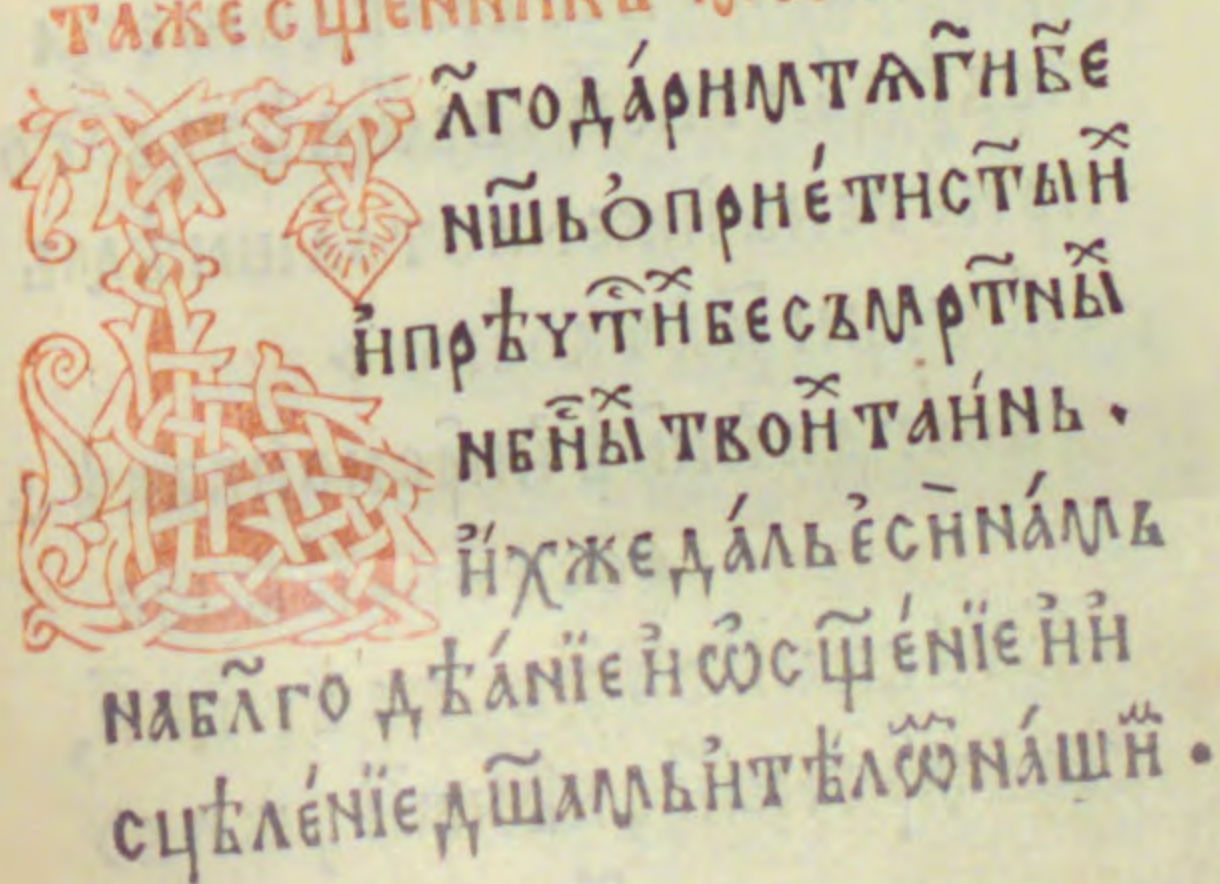 ТАЖЕ СЩЕННИКЬ
Бл҃года́римтѧ г҃и б҃е
нш҃ь ѻ҆прие́ти ст҃ыиⷯ
и҆прѣчⷭ҇т҇иⷯ бесъмрт҃ныⷯ
нбⷭ҇ныⷯ твоиⷯ таи́нь ·
и҆́хже да́ль є҆сѝ на́мь
на бл҃го дѣа́нїе и҆ ѡ҆сщ҃е́нїе и҆ и҆
сцѣле́нїе дш҃амь и҆ тѣлѡⷨ на́шиⷨ ·